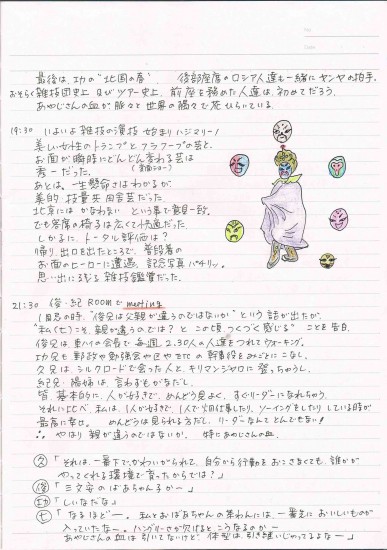 最後は、功の"北国の春"　後部座席のロシア人達も一緒にヤンヤの拍手。
おそらく雑技団史上 及びツアー史上、前座を務めた人達は、初めてだろう。
あやじさんの血が脈々と世界の隅々で花ひらいている。
19:30 いよいよ雑技の演技 始まりハジマリー！
美しい女性のトランプとフラフープの芸と、
お面が瞬時にどんどん変わる芸は
秀一だった。
あとは、一生懸命さはわかるが、
美的 技量共 田舎芸だった。
北京には かなわない という事で意見一致。
でも客席の椅子は広くて快適だった。
しかるに、トータル評価は？
帰り、出口を出たところで、普段着の
お面のヒーローに遭遇、記念写真パチリ。
思い出に残る 雑技鑑賞だった。
21:30 俊・紀 ROOMで meeting
1回忌の時、"俊兄は父親が違うのではないか"という話が出たが、
"私(七)こそ、親が違うのでは？とこの頃つくづく感じる"ことを告白。
俊兄は東ハイの会長で毎週、2.30人の人達をつれてウォーキング。
功兄も野政や勉強会や区やetcの幹事役をみごとにこなし。
久兄は、シルクロードで会った人と、キリマンジャロに登っちゃうし。
紀兄・陽姉は、言わずもがなだし。
皆、基本的に、人が好きで、めんどう見よく、すぐリーダーになれちゃう。
それに比べ、私は、1人が好きで、1人で畑仕事したり、ソーイングをしたりしている時が
最高に幸せ。 めんどうは見られる方だし、リーダーなんてとんでもない！
∴ やはり親が違うのではないか。 特にあやじさんの血。
久「それは、一番下で、かわいがられて、自分から行動をおこさなくても、誰かが
やってくれる環境で育ったからでは？」
俊「三文安のばあちゃん子かー」
功「しいなだな」
七「なるほどー。 私とおばあちゃんの茶わんには、一番先においしいものが
入っていたなー。ハングリーさが欠けるとこうなるのかー
あやじさんの血は引いてないけど、体型は引き継いじゃってるよなー」